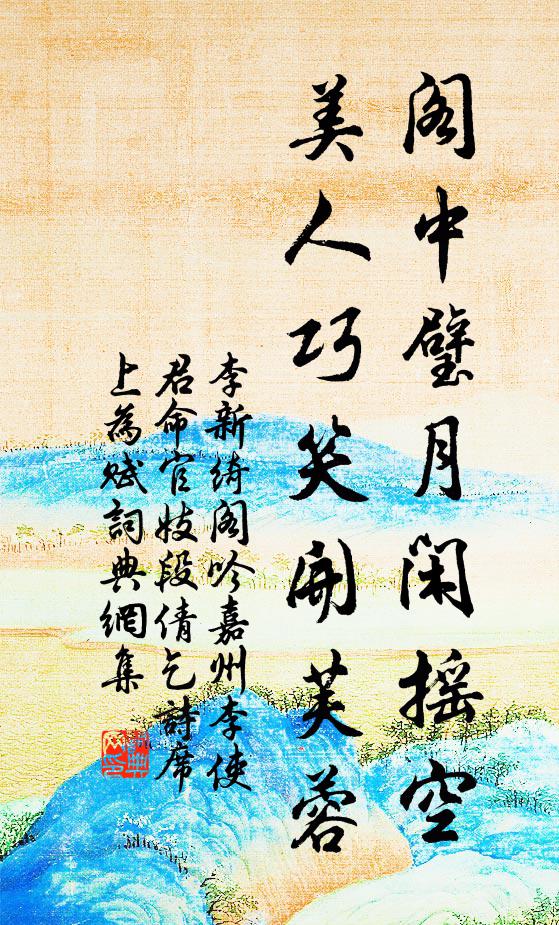 阁中璧月闲摇空
美人巧笑开芙蓉
李新绮阁吟嘉州李使
君命官妓段倩乞詩席
上為赋詞典網集